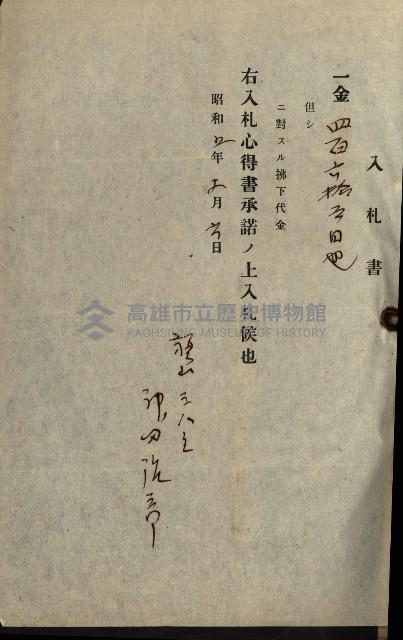 入札書
一金 四百六拾五円也
但シ
ニ對スル拂下代金
右入札心得書承諾ノ上入札候也
昭和五年 月六日
旗山
高雄市立歷史博物館
KAOHSIUNG MUSEUM OF HISTORY